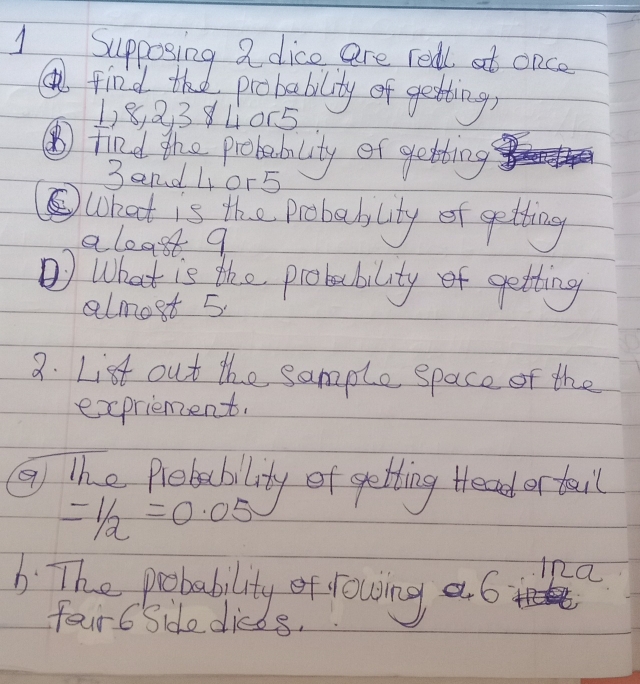 1 Supposing 2 dice are roll at once
(a) find the probability of getting,
1, 8, 2, 3 & 4 or 5
(b) Find the probability of getting
3 and 4 or 5
(c) What is the probability of getting
a least 9
D) What is the probability of getting
almost 5.
2. List out the sample space of the
expriement.
(a) The Probability of getting Head or tail
= 1/2 = 0.05
b. The probability of rowing a 6 in a
fair 6 side dices.